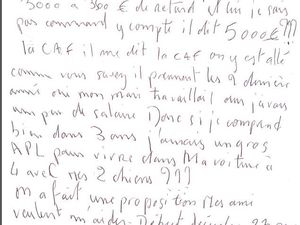 3000 à 3500 € de retard et lui je sais
pas comment y compte il dit 5000€???
la CAF il me dit la CAF on y est allé
comme vous savez il prennent les 2 dernière
année ou mon mari travaillait donc j'avais
un peu de salaire Donc si je comprend
bien dans 3 ans j'aurais un gros
APL pour vivre dans Ma voiture à
4 avec mes 2 chiens ???
on a fait une proposition Mes ami
veulent m'aider Début décembre